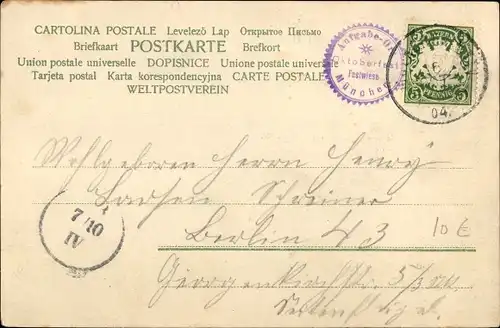 CARTOLINA POSTALE Levelező Lap Открытое Письмо
Briefkaart POSTKARTE Brefkort
Union postale universelle DOPISNICE Unione postale universale
Tarjeta postal Karta korespondencyjna CARTE POSTALE
WELTPOSTVEREIN
Aufgabe-O
Oktoberfest
Festwiese
München
BAYERN
5 5
PFENNIG
04
Wohlgeboren Herrn Henry
Larsen Schreiner
Berlin 43
10€
Georgenkirchstr. 5/3
Seitenflügel.
7/10
IV